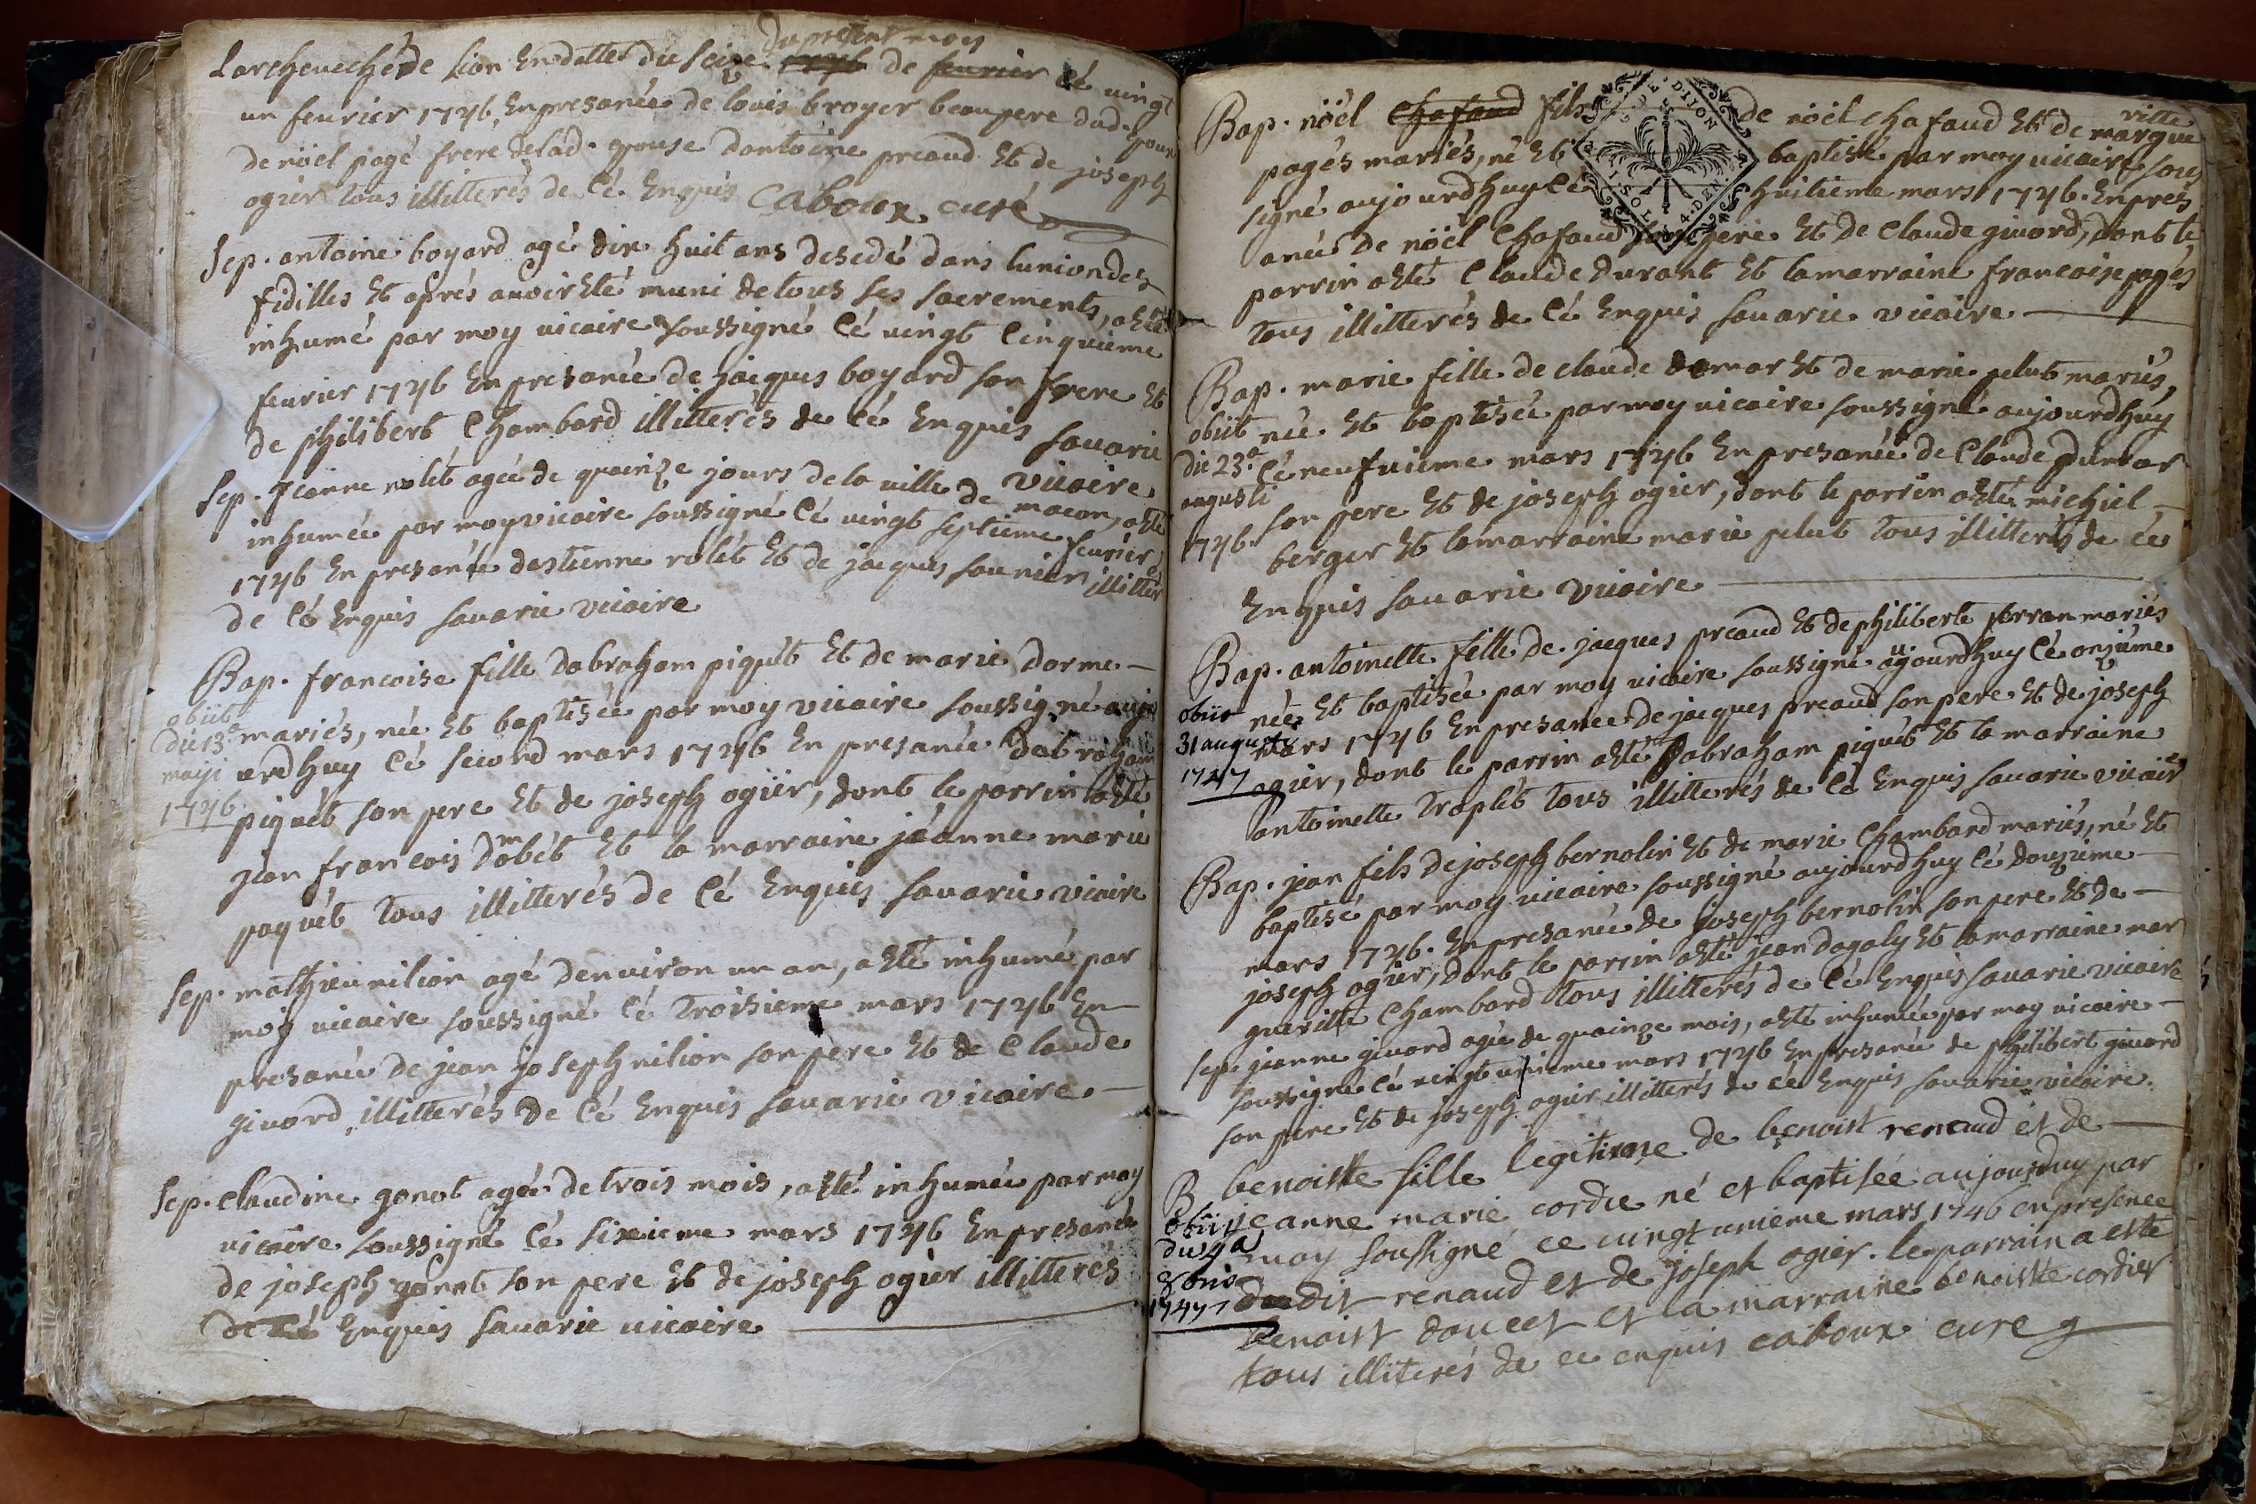 du present mois
Larcheueché de lion En datte du seize de feurier cé uingt
un feurier 1746, En presancée de louis broyer beaupere dud. epoux
de nöel pagé frere de lad. epouse dantoine preaud Et de joseph
ogier tous illitterés de Cé Enquis Caboux curé
Sep. antoine boyard agé dix huit ans desedé dans lunion des
fidilles Et aprés auoir Eté muni de tous ses sacrements, a Eté
inhumé par moy uicaire soussigné Cé uingt Cinquieme
feurier 1746 En presancée de jacques boyard son frere Et
de philibert Chambard illitterés de Cé Enquis sauarie
uicaire
Sep. Jeanne rolét agée de quainze jours de la uille de macon, a Eté
inhumée par moy vicaire soussigné Cé uingt septieme feurier
1746 En presancée destienne rolét Et de jacques saunier illitter
de Cé Enquis sauarie vicaire
Bap. francoise fille dabraham piquét Et de marie dorme
obiit
die 13a
maÿi
1746
mariés, née Et baptisée par moy vicaire soussigné aujo
urdhuy Cé second mars 1746 En presancée dabraham
piquét son pere Et de joseph ogier, dont le parrin a Eté
jean francois dombét Et la marraine jeanne marie
paquét tous illitterés de Cé Enquis sauarie vicaire
Sep. mathieu nilion agé denuiron un an, a Eté inhumé par
moy uicaire soussigné Cé troisieme mars 1746 En
presancée de jean joseph nilion son pere Et de Claude
giuord, illitterés de Cé Enquis sauarie vicaire
Sep. Claudine gonot agée de trois mois, a Eté inhumée par moy
uicaire soussigné Cé sixieme mars 1746 En presancée
de joseph gonot son pere Et de joseph ogier illitterés
de Cé Enquis sauarie uicaire
Bap. nöél Chafaud fils de nöel chafaud Et de margue
ritte
DIJON
SOL 4 DEN
pagés mariés, né Et baptisé par moy uicaire sous
signé aujourdhuy Cé huitieme mars 1746. En pres
ancée de nöél Chafaud son pere Et de Claude giuord, dont le
parrin a Eté Claude durant Et la marraine francoise pagés
tous illitterés de Cé Enquis sauarie vicaire
Bap. marie fille de claude demar Et de marie pelut mariés,
obiit
die 23a
augusti
1746
née Et baptisée par moy uicaire soussigné aujourdhuy
Cé neufuieme mars 1746 En presancée de Claude
son pere Et de joseph ogier, dont le parrin a Eté michiel
berger Et la marraine marie pelut tous illitterés de Cé
Enquis sauarie vicaire
Bap. antoinette fille de jacques preaud Et de philiberte perran mariés
obiit
31 augusti
1747
née Et baptisée par moy uicaire soussigné aujourdhuy Cé onzieme
mars 1746 En presancée de jacques preaud son pere Et de joseph
ogier, dont le parrin a Eté dabraham piquét Et la marraine
antoinette traplét tous illitterés de Cé Enquis sauarie vicaire
Bap. jean fils de joseph bernolin Et de marie Chambard mariés, né Et
baptisé par moy uicaire soussigné aujourdhuy Cé douzieme
mars 1746. En presancée de joseph bernolin son pere Et de
joseph ogier, dont le parrin a Eté jean dagaly Et la marraine mar
gueritte Chambard tous illitterés de Cé Enquis sauarie vicaire
Sep. jeanne giuord agée de quainze mois, a Eté inhumée par moy uicaire
soussigné Cé uingt unieme mars 1746 En presancée de philibert giuord
son pere Et de joseph ogier illitterés de Cé Enquis sauarie vicaire.
B. benoiste fille legitime de benoist renaud et de
obiit
du 9a
8bris
1747
jeanne marie cordie né et baptisée aujourduy par
moy soussigné ce vingt unieme mars 1746 en presence
dudit renaud et de joseph ogier. le parrain a esté
benoist doucet et la marraine benoiste cordier
tous illiterés de ce enquis caboux cure